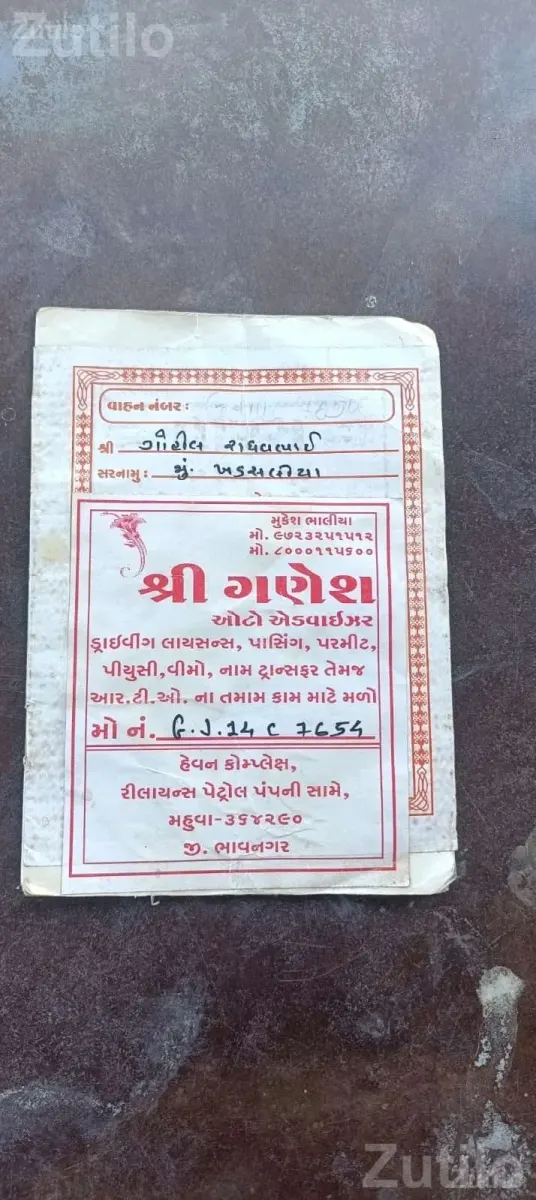 Zutilo
વાહન નંબર :
શ્રી ગોહીલ રાઘવભાઈ
સરનામુ : મું. ખડસલીયા
મુકેશ ભાલીયા
મો. ૯૭૨૩૨૫૧૫૧૨
મો. ૮૦૦૦૧૧૫૬૦૦
શ્રી ગણેશ
ઓટો એડવાઇઝર
ડ્રાઇવીગ લાયસન્સ, પાસિંગ, પરમીટ,
પીયુસી,વીમો, નામ ટ્રાન્સફર તેમજ
આર.ટી.ઓ. ના તમામ કામ માટે મળો
મો નં. G.J.14 C 7654
હેવન કોમ્પ્લેક્ષ,
રીલાયન્સ પેટ્રોલ પંપની સામે,
મહુવા-૩૬૪૨૯૦
જી. ભાવનગર
Zutilo